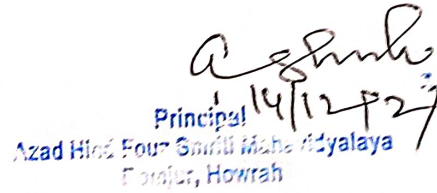 14/12/2
Principal
Azad Hind Four Smriti Mahavidyalaya
Domjur, Howrah